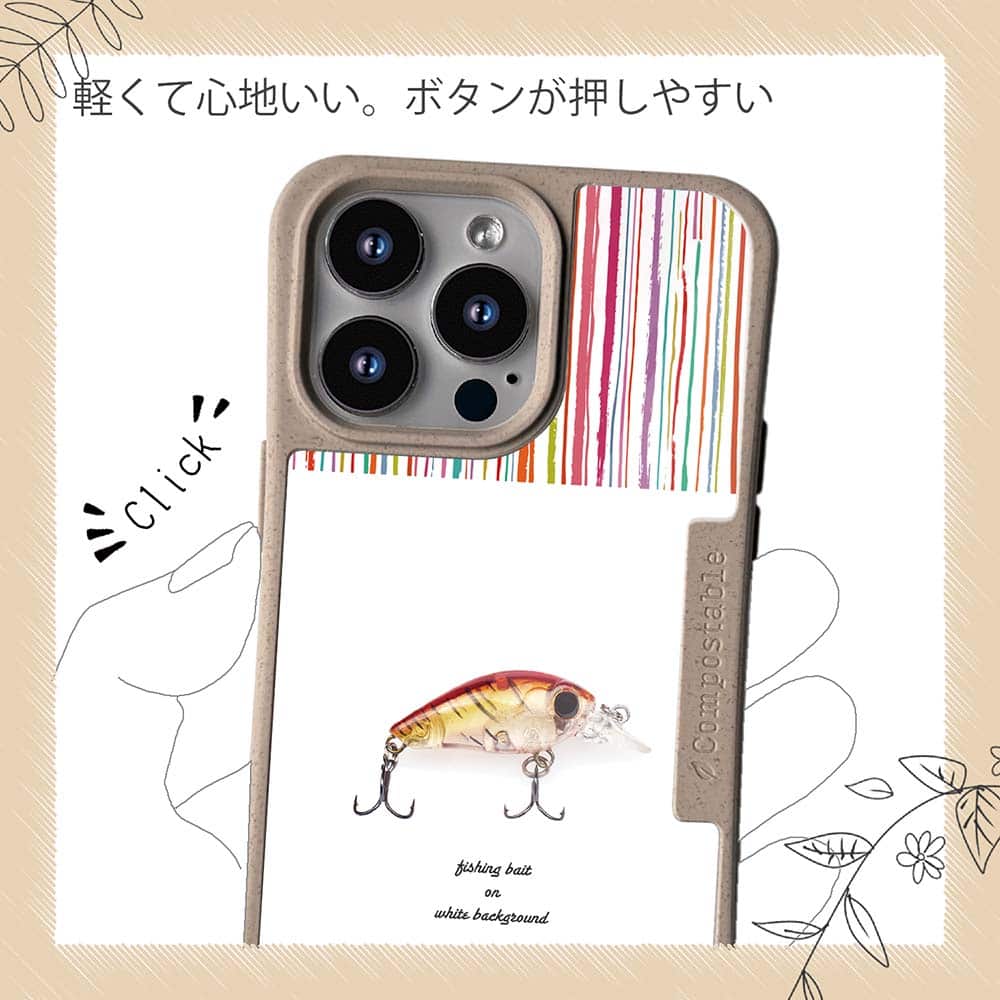 軽くて心地いい。ボタンが押しやすい
Click
Compostable
fishing bait
on
white background